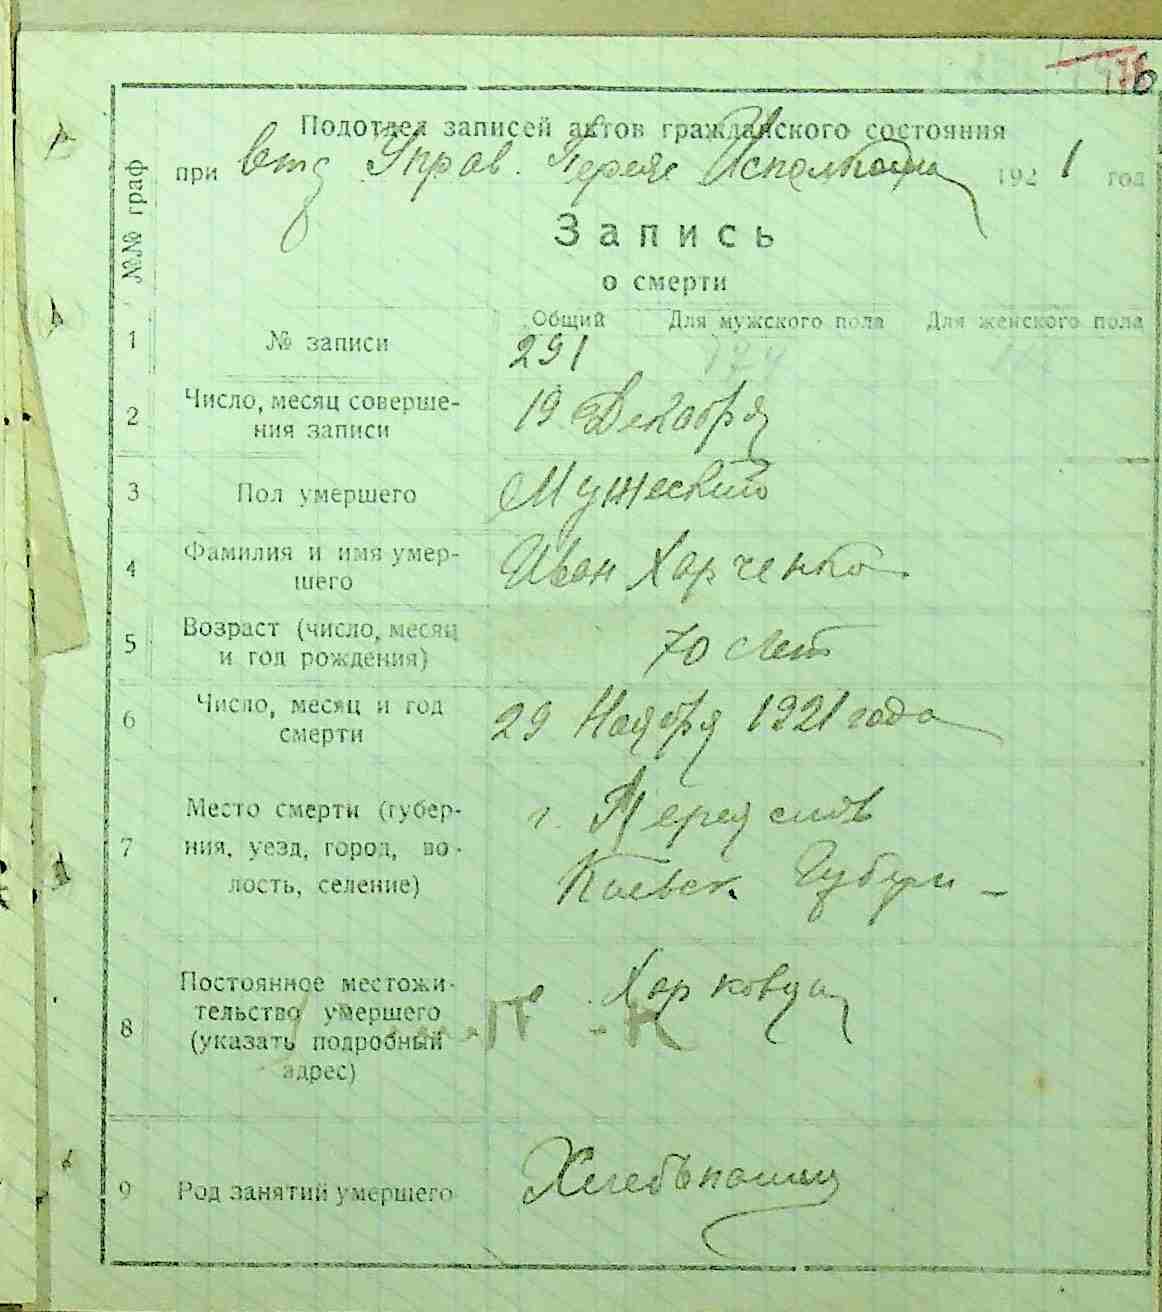 176
Подотдел записей актов гражданского состояния
при Отд Управ. Переяс Исполкома 1921 год
№№ граф
Запись
о смерти
Общий Для мужского пола Для женского пола
1 № записи 291 174
2 Число, месяц соверше-
ния записи 19 Декабря
3 Пол умершего Мужеский
4 Фамилия и имя умер-
шего Иван Харченко
5 Возраст (число, месяц
и год рождения) 70 лет
6 Число, месяц и год
смерти 29 Ноября 1921 года
7 Место смерти (губер-
ния, уезд, город, во-
лость, селение) г. Переяслов
Киевск. Губерн
8 Постоянное местожи-
тельство умершего
(указать подробный
адрес) Харковца
9 Род занятий умершего Хлебопашец